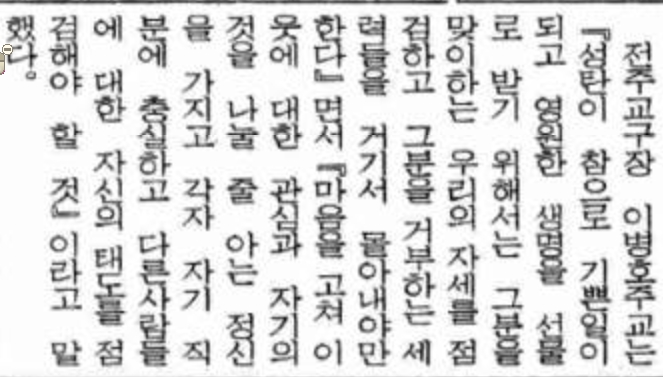 전주교구장 이병호주교는
『성탄이 참으로 기쁜일이
되고 영원한 생명을 선물
로 받기 위해서는 그분을
맞이하는 우리의 자세를 점
검하고 그분을 거부하는 세
력들을 거기서 몰아내야만
한다』면서 『마음을 고쳐 이
웃에 대한 관심과 자기의
것을 나눌 줄 아는 정신
을 가지고 각자 자기 직
분에 충실하고 다른사람들
에 대한 자신의 태도를 점
검해야 할 것』이라고 말
했다。